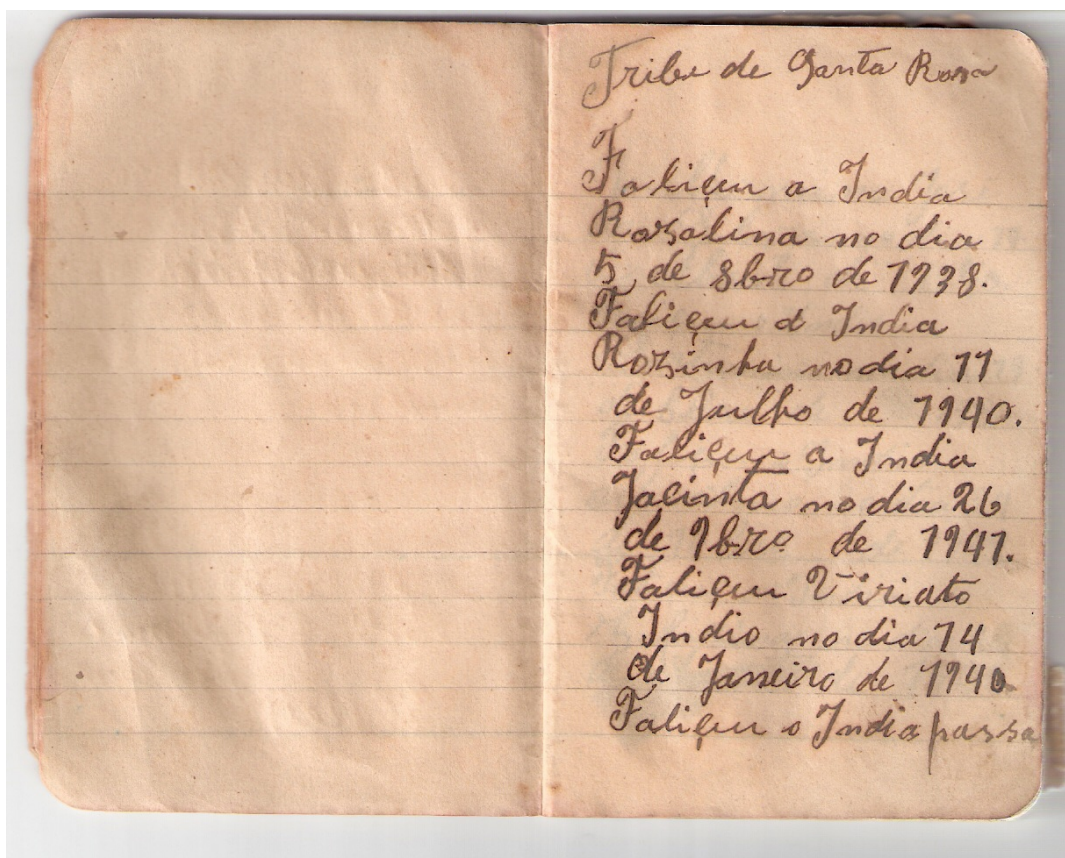 Tribu de Santa Rosa
Faliçeu a India
Rosalina no dia
5 de 8bro de 1938.
Faliçeu a India
Rozinha no dia 11
de Julho de 1940.
Faliçeu a India
Jacinta no dia 26
de 9bro de 1941.
Faliçeu Viriato
Indio no dia 14
de Janeiro de 1940
Faliçeu o India passa